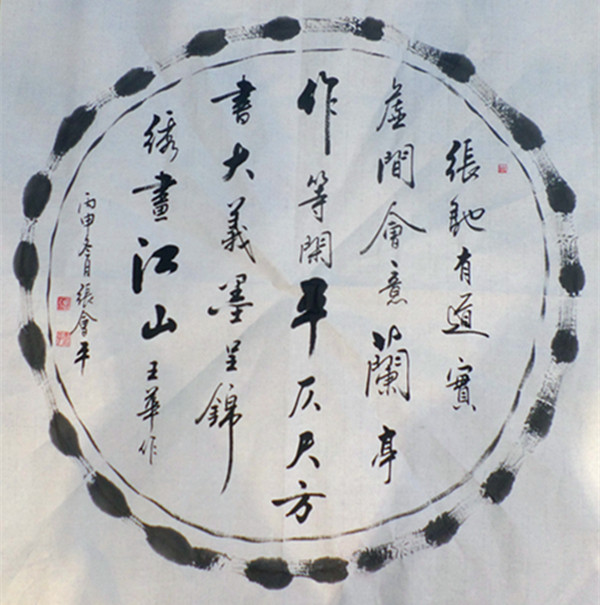 張馳有道實
虛間會意蘭亭
作等閑平仄尺方
書大義墨呈錦
綉畫江山 王華作
丙申冬月張會平